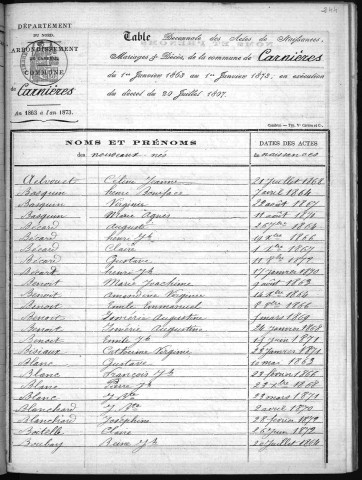 244
DÉPARTEMENT
DU NORD.
ARRONDISSEMENT
DE CAMBRAI
COMMUNE
de Carnières
An 1863 à l'an 1873.
Table Décennale des Actes de Naissances,
Mariages & Décès, de la commune de Carnières
du 1er Janvier 1863 au 1er Janvier 1873, en exécution
du décret du 20 Juillet 1807.
NOMS ET PRÉNOMS
des nouveaux-nés
DATES DES ACTES
de naissances
Céline Jeanne 21 Juillet 1868
Basquin Henri Boniface 7 avril 1864
Basquin Virginie 22 août 1867
Basquin Marie Agnès 11 août 1870
Bécard Auguste 1864
Bécard henri Jh 1866
Bécard Claire 1867
Bécard Gustave 11 8bre 1872
Bécard henri Jh 17 février 1870
Benoit Marie Joachime août 1863
Benoit Amandine Virginie 14 8bre 1864
Benoit Emile Emmanuel 1866
Benoit Augustine mars 1869
Benoit Augustine 24 janvier 1868
Benoit Emile Jh 14 juin 1871
Biseaux Catherine Virginie janvier 1871
Blanc Gustave mai 1863
Blanc François Jh 28 février 1866
Blanc Pierre Jh 1868
Blanc J. Bte 22 mars 1871
Blanchard J. Bte 2 avril 1870
Blanchard Joséphine 28 février 1872
Botelle Claire juin 1872
Boubay Reine Jh 20 juillet 1864